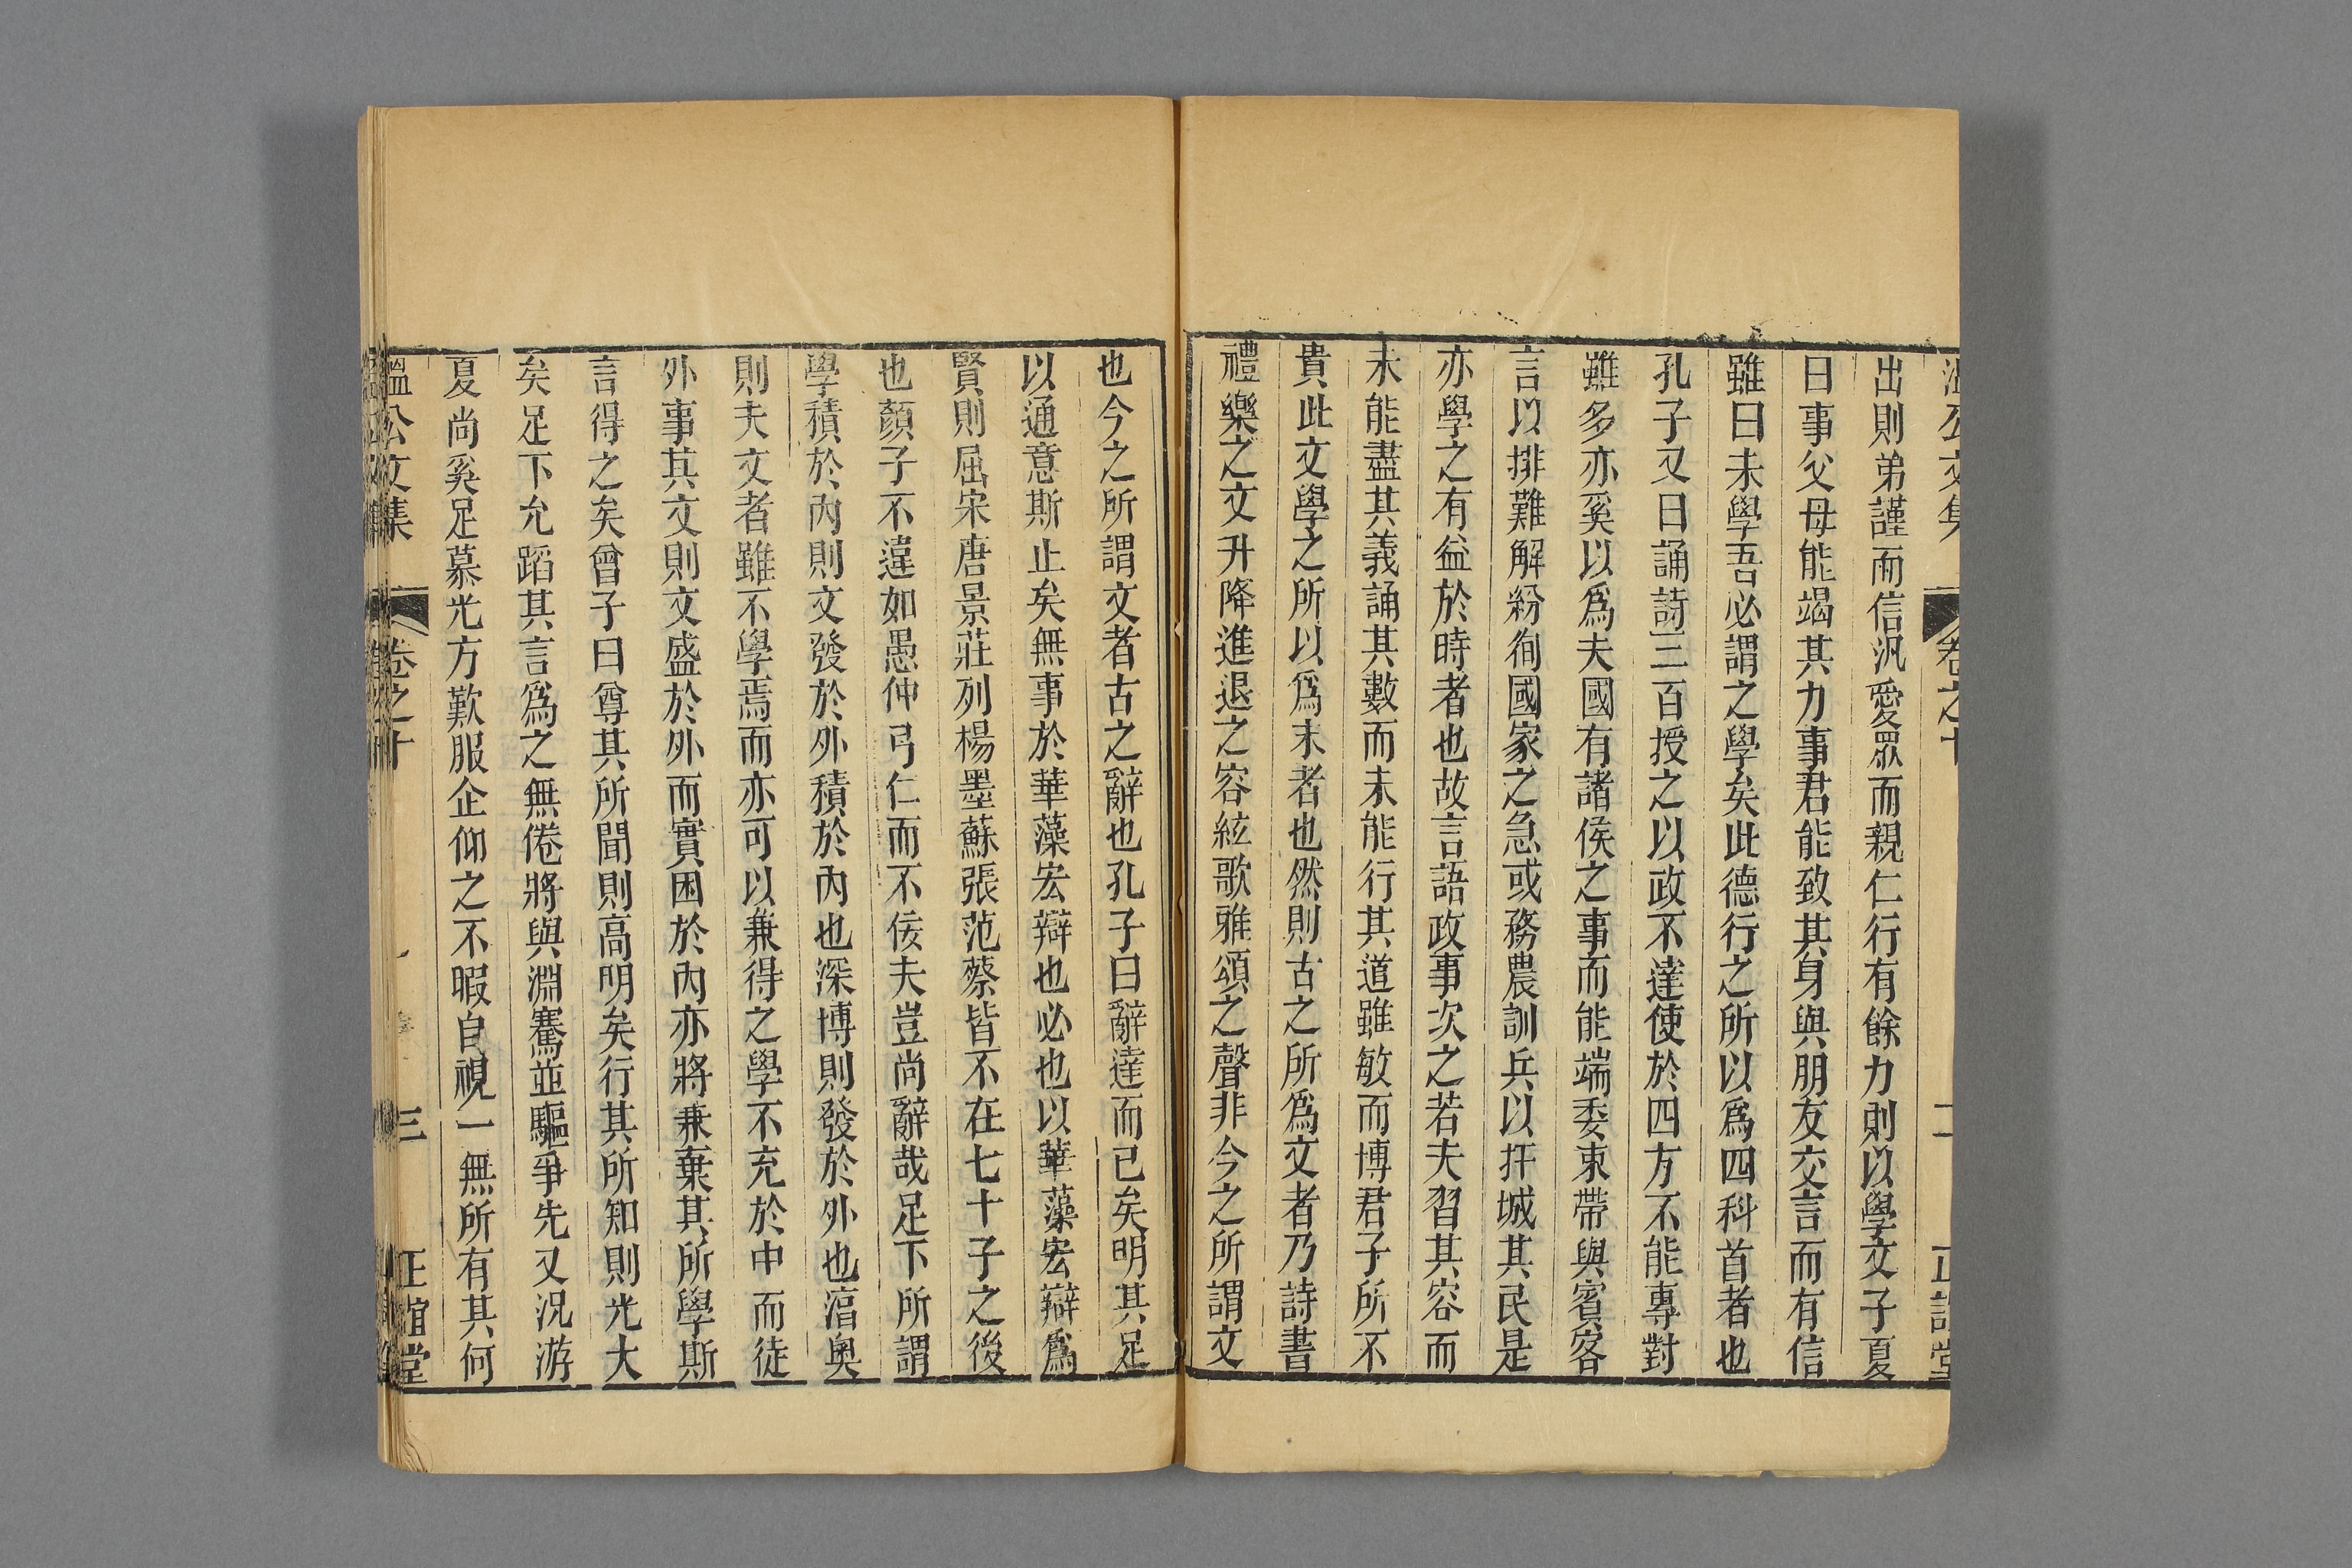 溫公文集 卷之十 二 正誼堂
出則弟謹而信汎愛眾而親仁行有餘力則以學文子夏
曰事父母能竭其力事君能致其身與朋友交言而有信
雖曰未學吾必謂之學矣此德行之所以爲四科首者也
孔子又曰誦詩三百授之以政不達使於四方不能專對
雖多亦奚以爲夫國有諸侯之事而能端委束帶與賓客
言以排難解紛徇國家之急或務農訓兵以扞城其民是
亦學之有益於時者也故言語政事次之若夫習其容而
未能盡其義誦其數而未能行其道雖敏而博君子所不
貴此文學之所以爲末者也然則古之所爲文者乃詩書
禮樂之文升降進退之容絃歌雅頌之聲非今之所謂文
也今之所謂文者古之辭也孔子曰辭達而已矣明其足
以通意斯止矣無事於華藻宏辯也必也以華藻宏辯爲
賢則屈宋唐景莊列楊墨蘇張范蔡皆不在七十子之後
也顏子不違如愚仲弓仁而不佞夫豈尚辭哉足下所謂
學積於內則文發於外積於內也深博則發於外也淳奧
則夫文者雖不學焉而亦可以兼得之學不充於中而徒
外事其文則文盛於外而實困於內亦將兼棄其所學斯
言得之矣曾子曰尊其所聞則高明矣行其所知則光大
矣足下允蹈其言爲之無倦將與淵騫並驅爭先又況游
夏尚奚足慕光方歎服企仰之不暇自視一無所有其何
溫公文集 卷之十 三 正誼堂